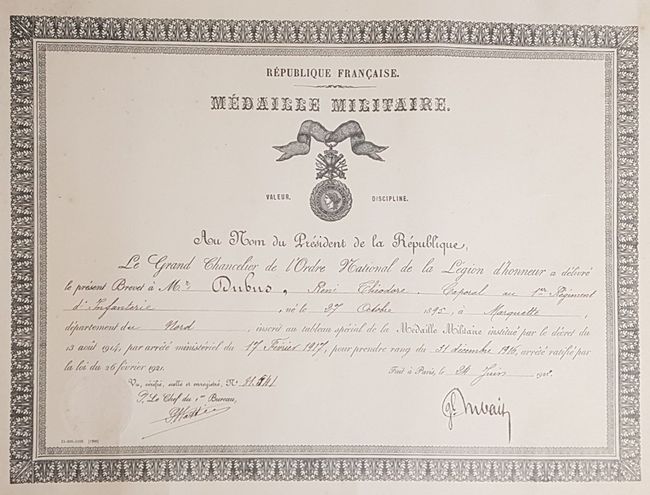 RÉPUBLIQUE FRANÇAISE.
MÉDAILLE MILITAIRE.
VALEUR. DISCIPLINE.
Au Nom du Président de la République,
Le Grand Chancelier de l'Ordre National de la Légion d'honneur a délivré
le présent Brevet à Mr Dubus, René Théodore, Caporal au 1er Régiment
d'Infanterie, né le 27 Octobre 1895, à Marquette,
département du Nord, inscrit au tableau spécial de la Médaille Militaire institué par le décret du
13 août 1914, par arrêté ministériel du 17 Février 1917, pour prendre rang du 31 decembre 1916, arrêté ratifié par
la loi du 26 février 1921.
Fait à Paris, le 24 Juin
Vu, vérifié, scellé et enregistré, N°
P. Le Chef du 1er Bureau,